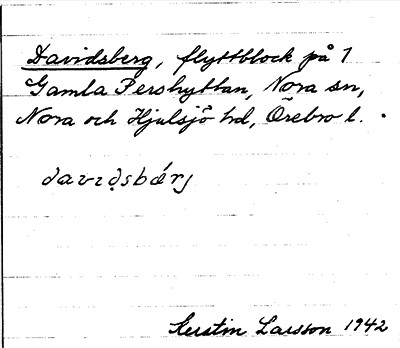 Davidsberg, flyttblock på 1
Gamla Pershyttan, Nora sn,
Nora och Hjulsjö hd, Örebro l.
davιḍsbǽrj
Kerstin Larsson 1942